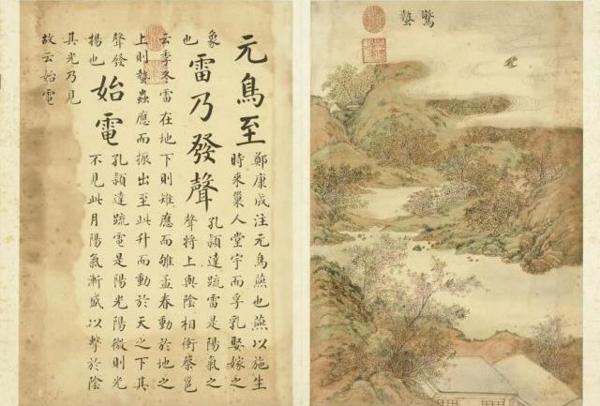 驚
蟄
元鳥至
鄭康成注元鳥燕也燕以施生
時來巢人堂宇而孚乳娶嫁之
象
也
雷乃發聲
孔頴達疏雷是陽氣之
聲將上與陰相衝蔡邕
云季冬雷在地下則雉應而雊孟春動於地之
上則蟄蟲應而振出至此升而動於天之下其
聲發
揚也
始電
孔頴達疏電是陽光陽微則光
不見此月陽氣漸盛以擊於陰
其光乃見
故云始電